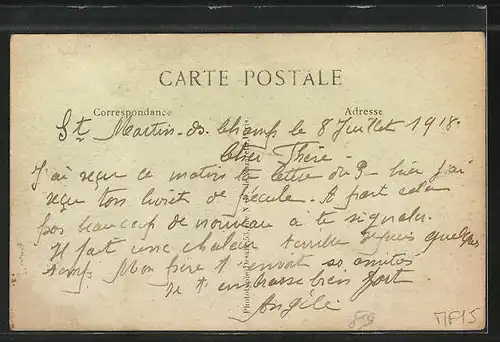 CARTE POSTALE
Correspondance
Adresse
St Martin-ds-Champs le 8 Juillet 1918.
Cher Frère
J'ai reçu ce matin ta lettre du 3- hier j'ai
reçu ton livret de fécule. A part cela
pas beaucoup de nouveau à te signaler.
Il fait une chaleur terrible depuis quelque
temps. Mon frère t'envoit ses amitiés
Je t'embrasse bien fort
Angèle
MF15